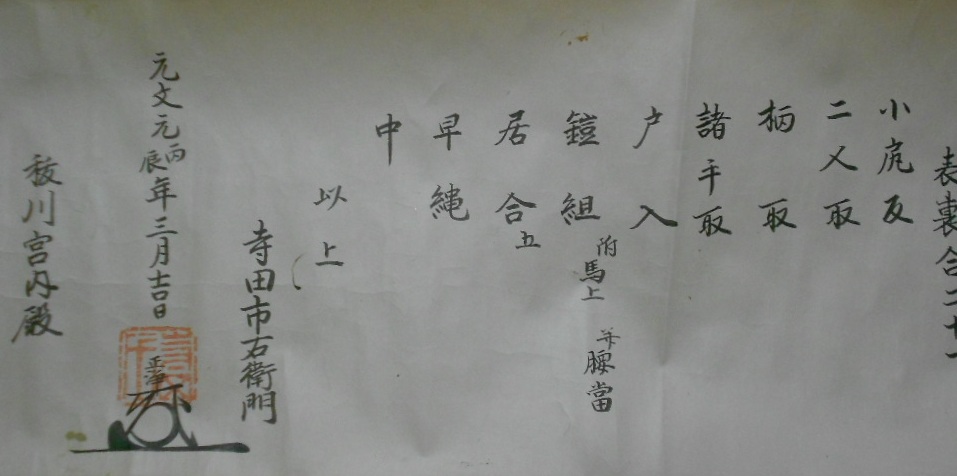 表裏合二十一
小尻反
二人取
柄取
諸手取
戸入
鎧組 附馬上 并腰當
居合五
早縄
中
以上
寺田市右衛門
元文元丙辰年三月吉日
正浄
川宮内殿